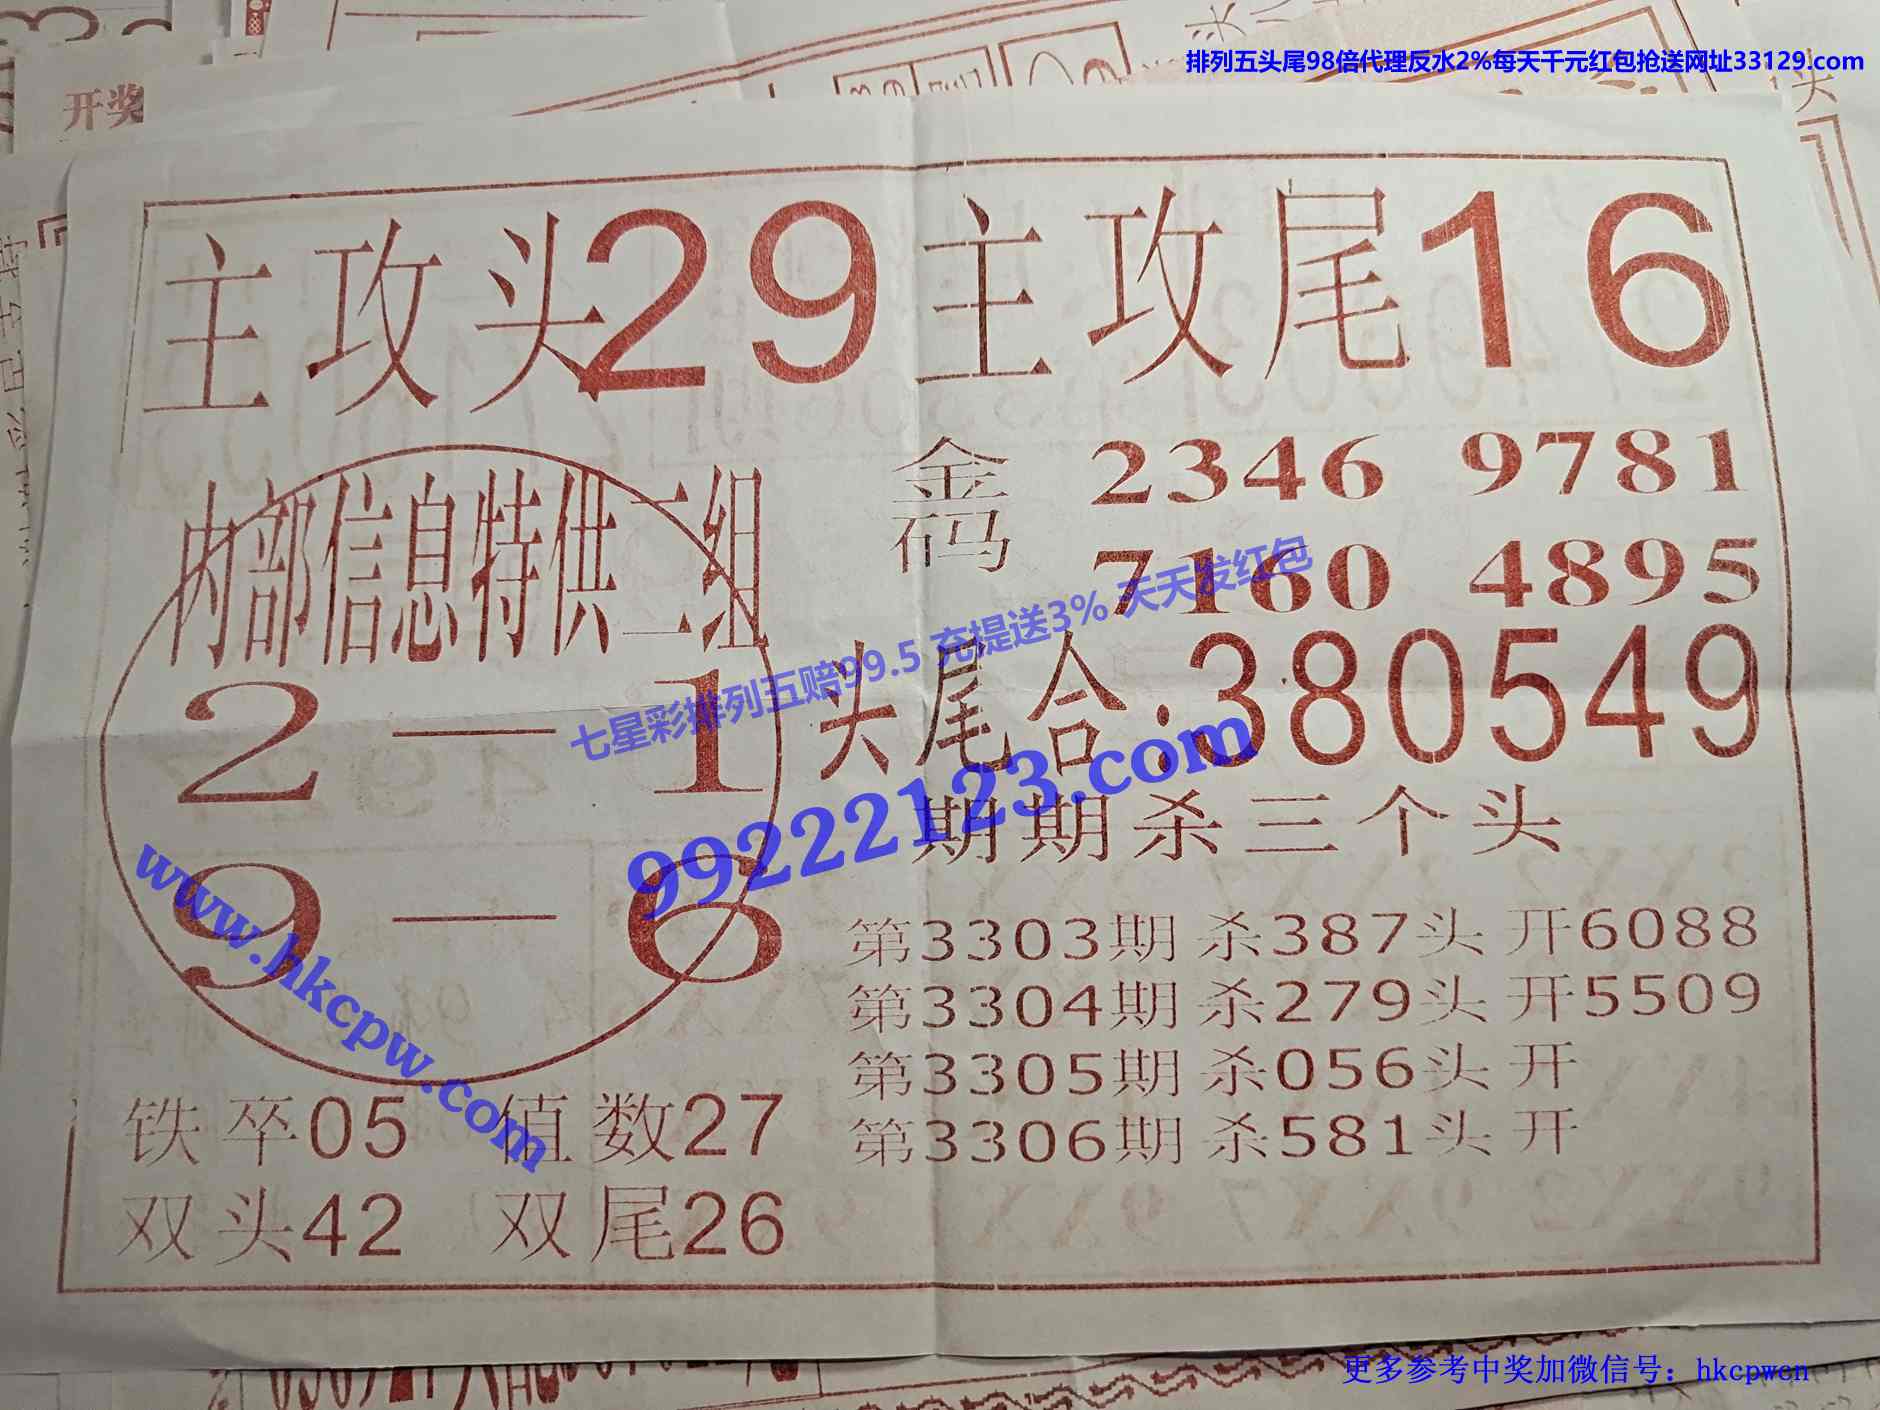 排列五头尾98倍代理反水2%每天千元红包抢送网址33129.com
开奖
主攻头29 主攻尾16
内部信息特供二组
2—1
9—6
金码 2346 9781
7160 4895
头尾合.380549
七星彩排列五赔99.5 充提送3% 天天发红包
99222123.com
www.hkcpw.com
期期杀三个头
第3303期 杀387头 开6088
第3304期 杀279头 开5509
第3305期 杀056头 开
第3306期 杀581头 开
铁卒05 值数27
双头42 双尾26
更多参考中奖加微信号：hkcpwcn